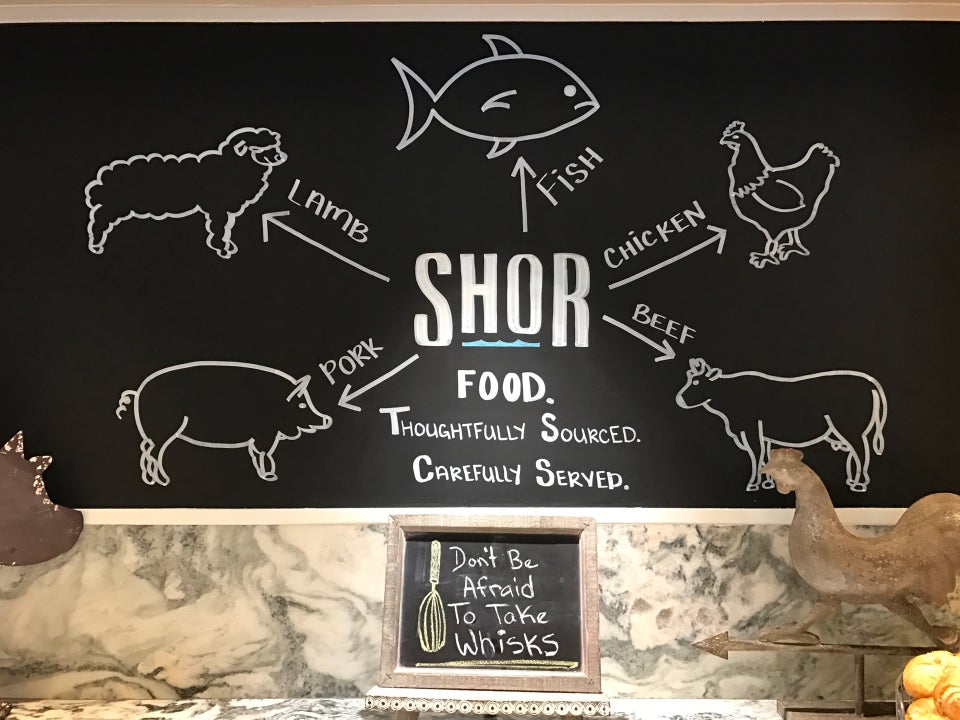 FISH
LAMB
CHICKEN
SHOR
BEEF
PORK
FOOD.
THOUGHTFULLY SOURCED.
CAREFULLY SERVED.
Don't Be
Afraid
To Take
Whisks